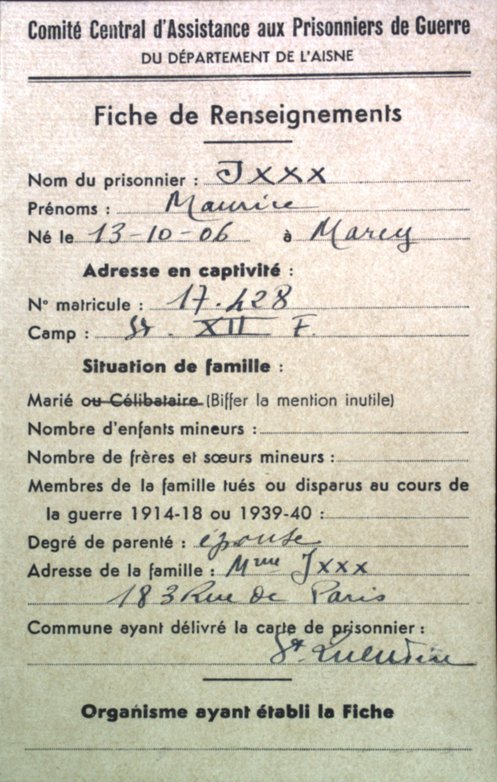 Comité Central d'Assistance aux Prisonniers de Guerre
DU DÉPARTEMENT DE L'AISNE
Fiche de Renseignements
Nom du prisonnier : Jxxx
Prénoms : Maurice
Né le 13-10-06 à Marcy
Adresse en captivité :
N° matricule : 17.428
Camp : St. XII F.
Situation de famille :
Marié ou Célibataire (Biffer la mention inutile)
Nombre d'enfants mineurs :
Nombre de frères et sœurs mineurs :
Membres de la famille tués ou disparus au cours de
la guerre 1914-18 ou 1939-40 :
Degré de parenté : épouse
Adresse de la famille : Mme Jxxx
183 Rue de Paris
Commune ayant délivré la carte de prisonnier :
St Quentin
Organisme ayant établi la Fiche